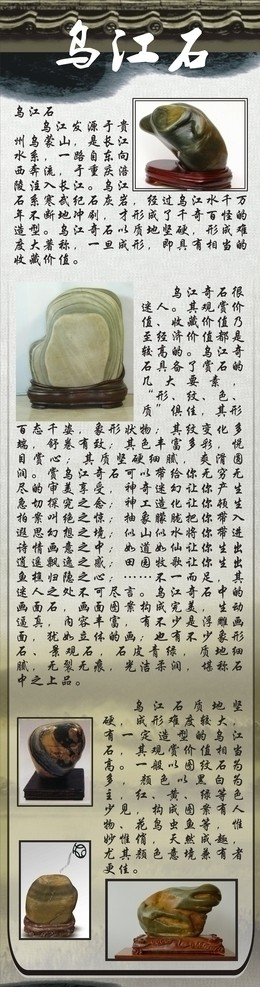 乌江石
乌江石
乌江发源于贵
州乌蒙山，是长江
水系，一路自东向
西奔流，于重庆涪
陵注入长江。乌江
石系寒武纪石灰岩，经过乌江水千万
年不断地冲刷，才形成了千奇百怪的
造型。乌江奇石以质地坚硬，形成难
度大著称，一旦成形，即具有相当的
收藏价值。
乌江奇石很
迷人。其观赏价
值、收藏价值乃
至经济价值都是
较高的。乌江奇
石具备了赏石的
几大要素，
“形、纹、色、
质”俱佳，其形
百态千姿，象形状物；其纹变化多
端，舒卷有致；其色丰富多彩，悦
目赏心；其质坚硬细腻，爽滑圆
润。赏乌江奇石可以带给你无穷无
尽的审美享受，神奇迷幻让你产生
急切探究之念；神工造化让你顿生
拍案叫绝之惊；抽象朦胧把你带入
遐思幻想之境；似山似水将你带进
诗情画意之中；如道如仙让你生出
逍遥飘逸之感；田园牧歌让你生出
鱼樵归隐之心；……不一而足，其
迷人之处不可尽言。乌江奇石中的
画面石，画面图案构成完美，生动
逼真，内容丰富，有不少是浮雕画
面，犹如立体的画；也有不少象形
石、景观石，石皮青绿，质地细
腻，无裂无痕，光洁柔润，堪称石
中之上品。
乌江石质地坚
硬，成形难度较大，
有一定造型的乌江
石，其观赏价值相当
高。一般以图纹石为
多，颜色以黑白为
主，红、黄、绿等色
少见，构成图案有人
物、花鸟虫鱼等，惟
妙惟俏，天然成趣，
尤其颜色意境兼有者
更佳。